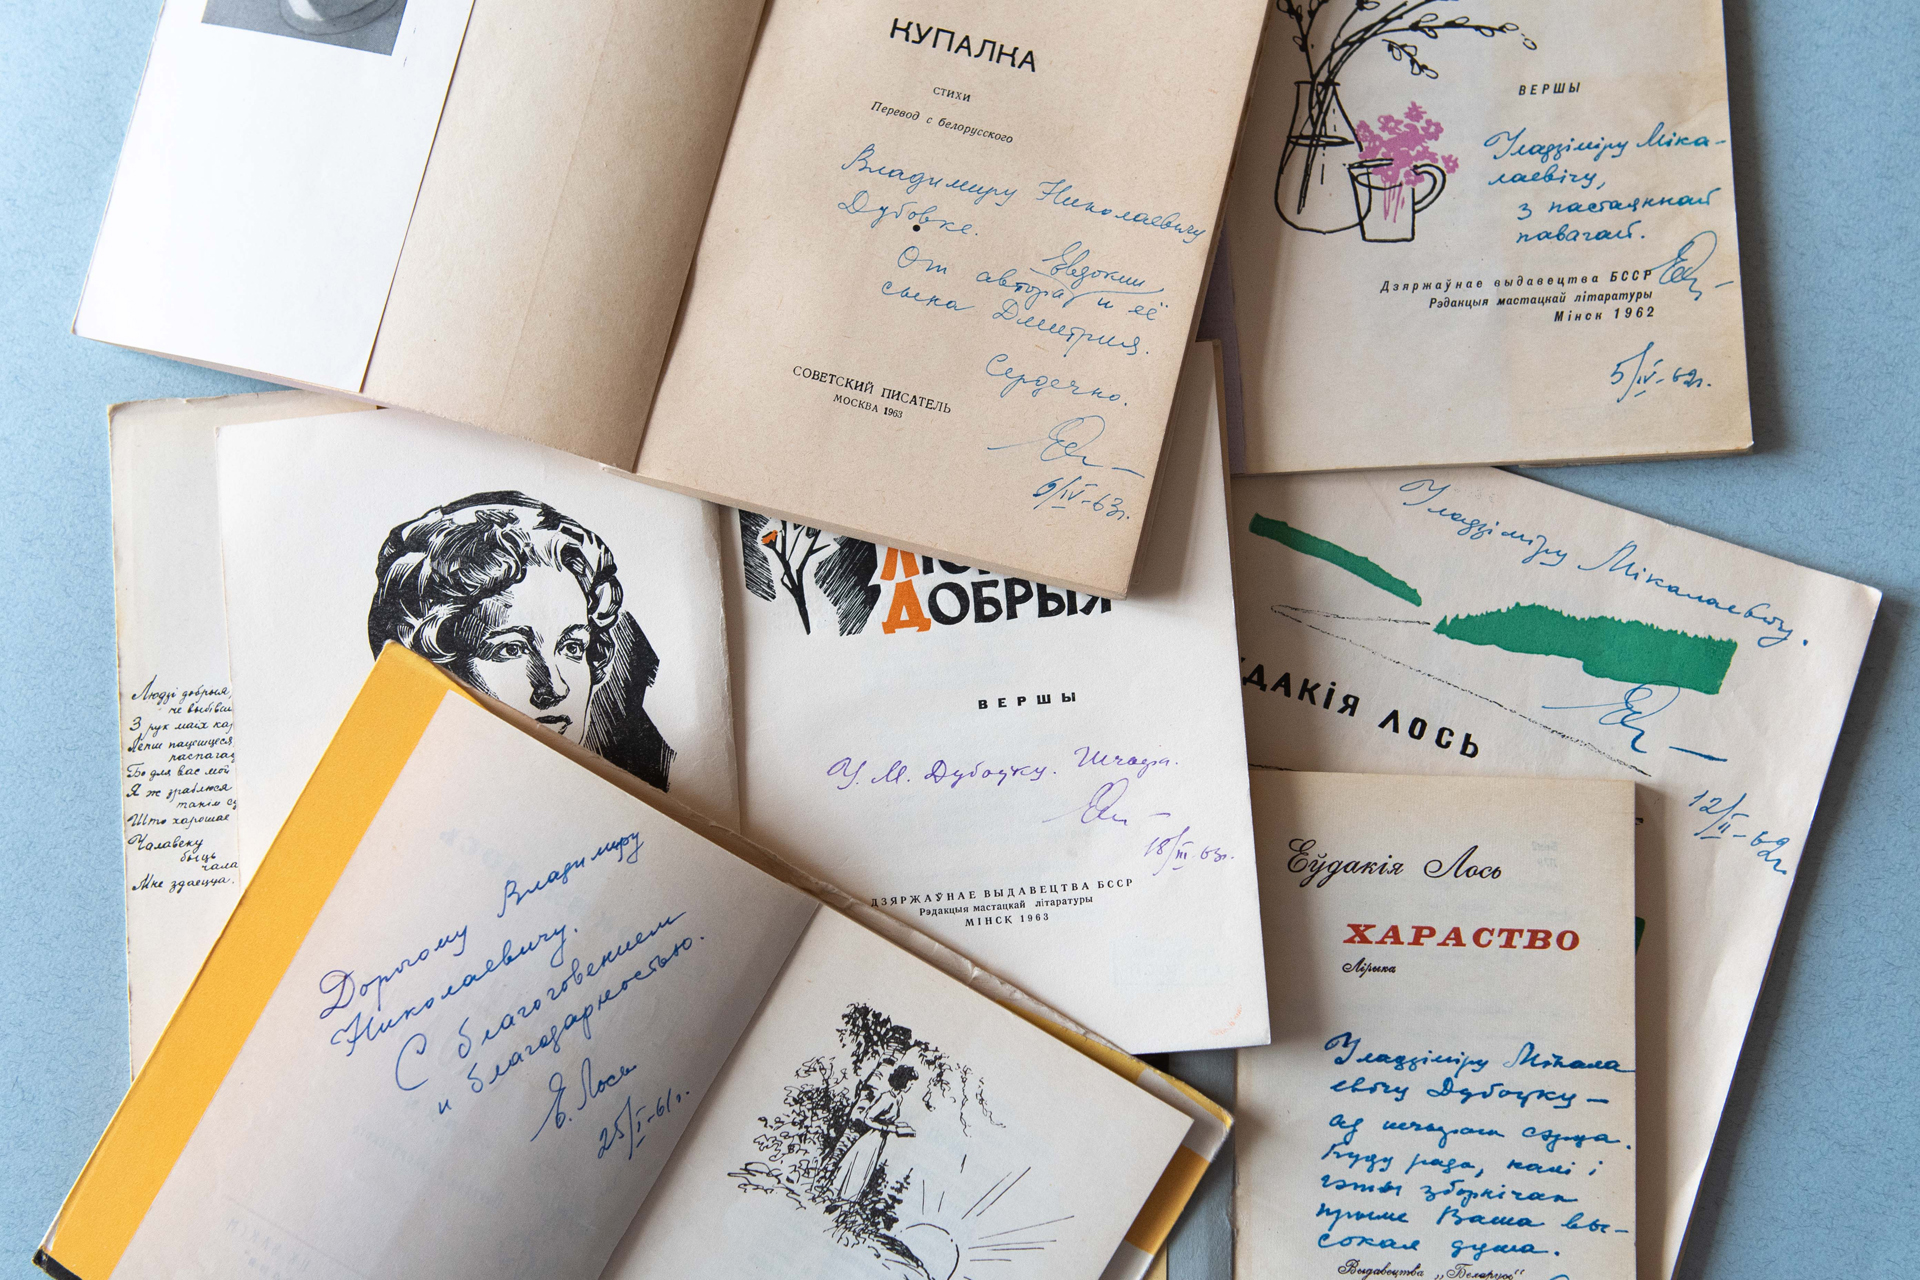 КУПАЛКА
СТИХИ
Перевод с белорусского
Владимиру Николаевичу
Дубовке.
От автора Евдокии,
и её
сынка Дмитрия.
Сердечно.
6/IV-63г.
СОВЕТСКИЙ ПИСАТЕЛЬ
МОСКВА 1963
ВЕРШЫ
Уладзіміру Міка-
лаевічу,
з пастаяннай
павагай.
Дзяржаўнае выдавецтва БССР
Рэдакцыя мастацкай літаратуры
Мінск 1962
5/IV-62г.
Людзі добрыя,
не выбівай
З рук маіх
Лепш пацешцеся,
Бо для вас мой
Я ж зраблюся
такім
Што харошае
Чалавеку
быць
Мне здаецца.
ДОБРЫЯ
ВЕРШЫ
У. М. Дубоўку. Шчыра.
18/III-63г.
ДЗЯРЖАЎНАЕ ВЫДАВЕЦТВА БССР
Рэдакцыя мастацкай літаратуры
МІНСК 1963
Уладзіміру Мікалаевічу.
ДАКІЯ ЛОСЬ
12/II-69
Дорогому Владимиру
Николаевичу.
С благоговением
и благодарностью.
Е. Лось
25/I-61г.
Еўдакія Лось
ХАРАСТВО
Лірыка
Уладзіміру Мікала
евічу Дубоўку —
ад шчырага сэрца.
Буду рада, калі і
гэты зборнічак
прыме Ваша вы-
сокая душа.
Выдавецтва „Беларусь“